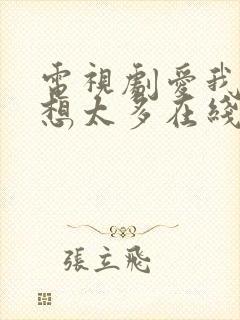 電視劇愛我
想太多在綫
張立飛